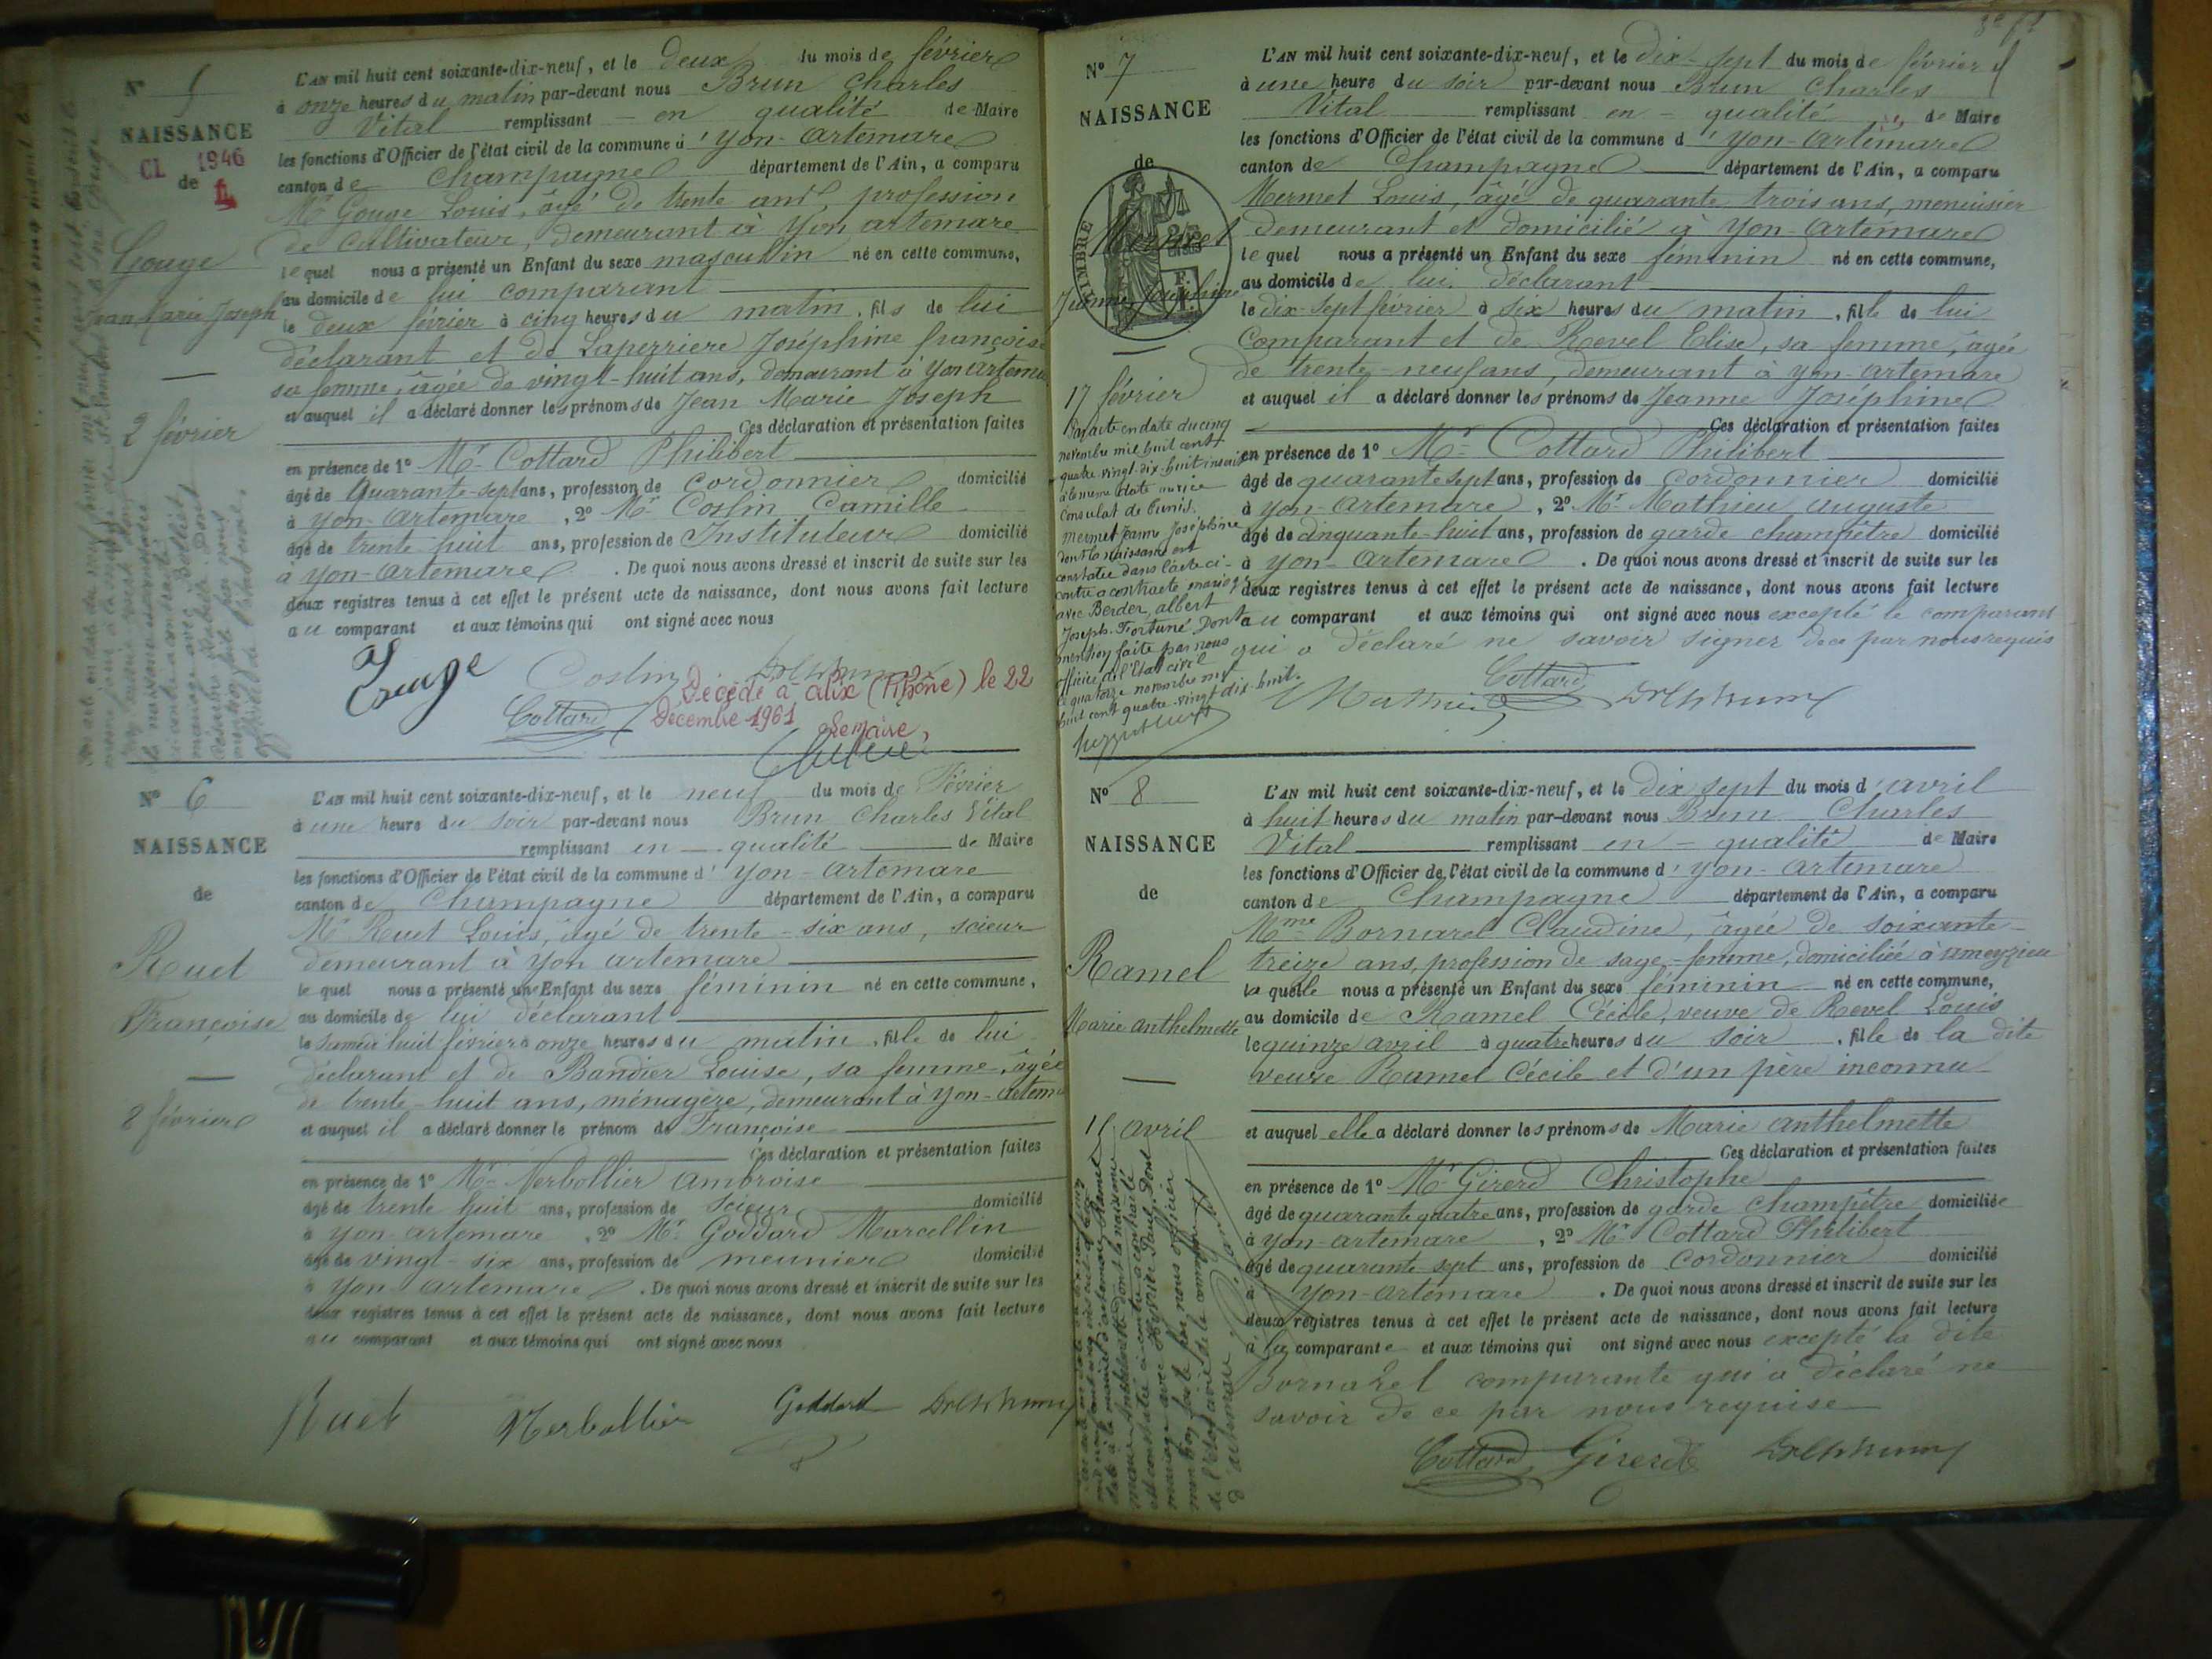 N° 5
NAISSANCE
CL 1946
de
Gouge
Jean Marie Joseph
2 février
L'AN mil huit cent soixante-dix-neuf, et le deux du mois de février
à onze heures du matin par-devant nous Brun Charles
Vital remplissant en qualité de Maire
les fonctions d'Officier de l'état civil de la commune d'Yon-Artemare
canton de Champagne département de l'Ain, a comparu
Mr Gouge Louis, âgé de trente ans, profession
de cultivateur, demeurant à Yon artemare
lequel nous a présenté un Enfant du sexe masculin né en cette commune,
au domicile de lui comparant
le deux février à cinq heures du matin, fils de lui
déclarant et de Laperriere Joséphine françoise
sa femme, âgée de vingt-huit ans, demeurant à Yon artemare
et auquel il a déclaré donner les prénoms de Jean Marie Joseph
Ces déclaration et présentation faites
en présence de 1° Mr Cottard Philibert
âgé de quarante-sept ans, profession de cordonnier domicilié
à Yon-Artemare, 2° Mr Coslin Camille
âgé de trente huit ans, profession de Instituteur domicilié
à Yon-Artemare. De quoi nous avons dressé et inscrit de suite sur les
deux registres tenus à cet effet le présent acte de naissance, dont nous avons fait lecture
au comparant et aux témoins qui ont signé avec nous
Gouge Coslin
Cottard
Décédé à Alix (Rhône) le 22
Décembre 1961
Le Maire,
N° 6
NAISSANCE
de
Ruet
Françoise
8 février
L'AN mil huit cent soixante-dix-neuf, et le neuf du mois de Février
à une heure du soir par-devant nous Brun Charles Vital
remplissant en qualité de Maire
les fonctions d'Officier de l'état civil de la commune d'Yon-Artemare
canton de Champagne département de l'Ain, a comparu
Mr Ruet Louis, âgé de trente-six ans, scieur
demeurant à Yon artemare
lequel nous a présenté un Enfant du sexe féminin né en cette commune,
au domicile de lui déclarant
le samedi huit février à onze heures du matin, fille de lui
déclarant et de Bandier Louise, sa femme, âgée
de trente-huit ans, ménagère, demeurant à Yon-Artemare
et auquel il a déclaré donner le prénom de Françoise
Ces déclaration et présentation faites
en présence de 1° Mr Nerbollier Ambroise
âgé de trente huit ans, profession de scieur domicilié
à Yon artemare, 2° Mr Goddard Marcellin
âgé de vingt-six ans, profession de meunier domicilié
à Yon artemare. De quoi nous avons dressé et inscrit de suite sur les
deux registres tenus à cet effet le présent acte de naissance, dont nous avons fait lecture
au comparant et aux témoins qui ont signé avec nous
Ruet Nerbollier Goddard
N° 7
NAISSANCE
de
TIMBRE
Mermet
Jeanne Joséphine
17 février
Par acte en date du cinq
novembre mil huit cent
quatre vingt-dix-huit inscrit
à la même date
consulat de Tunis.
Mermet Jeanne Joséphine
dont la naissance est
constatée dans l'acte ci-
contre a contracté mariage
avec Berder, albert
Joseph-Fortuné Dont
mention faite par nous
officier de l'Etat civil
le quatorze novembre mil
huit cent quatre-vingt-dix-huit.
L'AN mil huit cent soixante-dix-neuf, et le dix-sept du mois de février
à une heure du soir par-devant nous Brun Charles
Vital remplissant en qualité de Maire
les fonctions d'Officier de l'état civil de la commune d'Yon-Artemare
canton de Champagne département de l'Ain, a comparu
Mermet Louis, âgé de quarante trois ans, menuisier
demeurant et domicilié à Yon-Artemare
lequel nous a présenté un Enfant du sexe féminin né en cette commune,
au domicile de lui déclarant
le dix-sept février à six heures du matin, fille de lui
Comparant et de Revel Elise, sa femme, âgée
de trente-neuf ans, demeurant à Yon-artemare
et auquel il a déclaré donner les prénoms de Jeanne Joséphine
Ces déclaration et présentation faites
en présence de 1° Mr Cottard Philibert
âgé de quarante sept ans, profession de cordonnier domicilié
à Yon-Artemare, 2° Mr Mathieu Auguste
âgé de cinquante-huit ans, profession de garde champêtre domicilié
à Yon-Artemare. De quoi nous avons dressé et inscrit de suite sur les
deux registres tenus à cet effet le présent acte de naissance, dont nous avons fait lecture
au comparant et aux témoins qui ont signé avec nous excepté le comparant
qui a déclaré ne savoir signer de ce par nous requis
Cottard
Mathieu
N° 8
NAISSANCE
de
Ramel
Marie Anthelmette
15 avril
L'AN mil huit cent soixante-dix-neuf, et le dix sept du mois d'avril
à huit heures du matin par-devant nous Brun Charles
Vital remplissant en qualité de Maire
les fonctions d'Officier de l'état civil de la commune d'Yon-Artemare
canton de Champagne département de l'Ain, a comparu
Mme Bornarel Claudine, âgée de soixante-
treize ans, profession de sage-femme, domiciliée à ameyzieu
laquelle nous a présenté un Enfant du sexe féminin né en cette commune,
au domicile de Ramel Cécile, veuve de Revel Louis
le quinze avril à quatre heures du soir, fille de la dite
veuve Ramel Cécile et d'un père inconnu
et auquel elle a déclaré donner les prénoms de Marie anthelmette
Ces déclaration et présentation faites
en présence de 1° Mr Girerd Christophe
âgé de quarante quatre ans, profession de garde champêtre domicilié
à Yon-artemare, 2° Mr Cottard Philibert
âgé de quarante sept ans, profession de cordonnier domicilié
à Yon-artemare. De quoi nous avons dressé et inscrit de suite sur les
deux registres tenus à cet effet le présent acte de naissance, dont nous avons fait lecture
à la comparante et aux témoins qui ont signé avec nous excepté la dite
Bornarel comparante qui a déclaré ne
savoir de ce par nous requise
Cottard Girerd